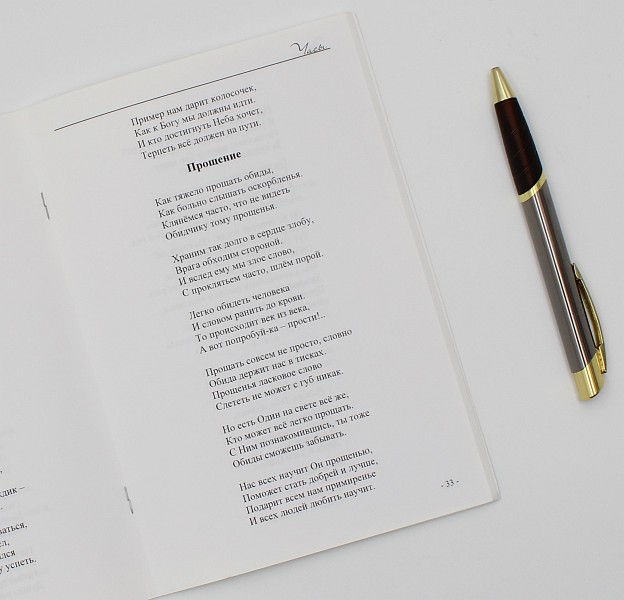 Часы
Пример нам дарит колосочек,
Как к Богу мы должны идти.
И кто достигнуть Неба хочет,
Терпеть всё должен на пути.
Прощение
Как тяжело прощать обиды,
Как больно слышать оскорбленья.
Клянёмся часто, что не видеть
Обидчику тому прощенья.
Храним так долго в сердце злобу,
Врага обходим стороной.
И вслед ему мы злое слово,
С проклятьем часто, шлём порой.
Легко обидеть человека
И словом ранить до крови.
То происходит век из века,
А вот попробуй-ка – прости!..
Прощать совсем не просто, словно
Обида держит нас в тисках.
Прощенья ласковое слово
Слететь не может с губ никак.
Но есть Один на свете всё же,
Кто может всё легко прощать.
С Ним познакомившись, ты тоже
Обиды сможешь забывать.
Нас всех научит Он прощенью,
Поможет стать добрей и лучше,
Подарит всем нам примиренье
И всех людей любить научит.
- 33 -
у успеть.